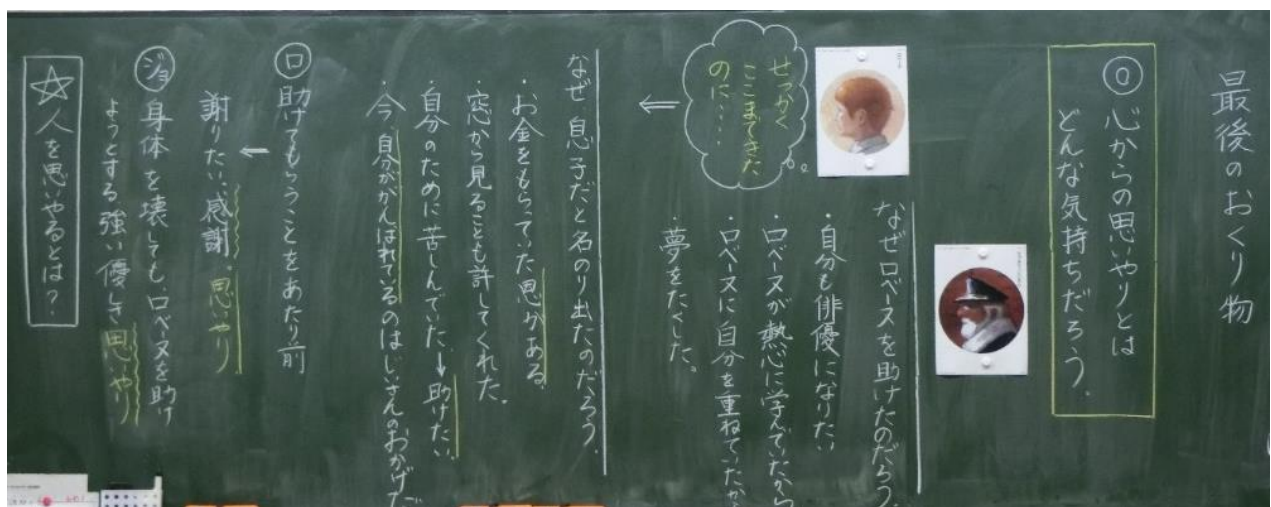 最後のおくり物
◎心からの思いやりとは
どんな気持ちだろう。
なぜロベーヌを助けたのだろう。
・自分も俳優になりたい
・ロベーヌが熱心に学んでいたから
・ロベーヌに自分を重ねていたから
・夢をたくした。
せっかく
ここまできた
のに・・・・
なぜ息子だと名のり出たのだろう。
・お金をもらっていた恩がある
・窓から見ることも許してくれた。
・自分のために苦しんでいた→助けたい。
・今自分ががんばれているのはじいさんのおかげだ
ロ助けてもらうことをあたり前
←
謝りたい、感謝。思いやり
ジョ身体を壊してもロベーヌを助け
ようとする強い優しさ思いやり
☆人を思いやるとは？